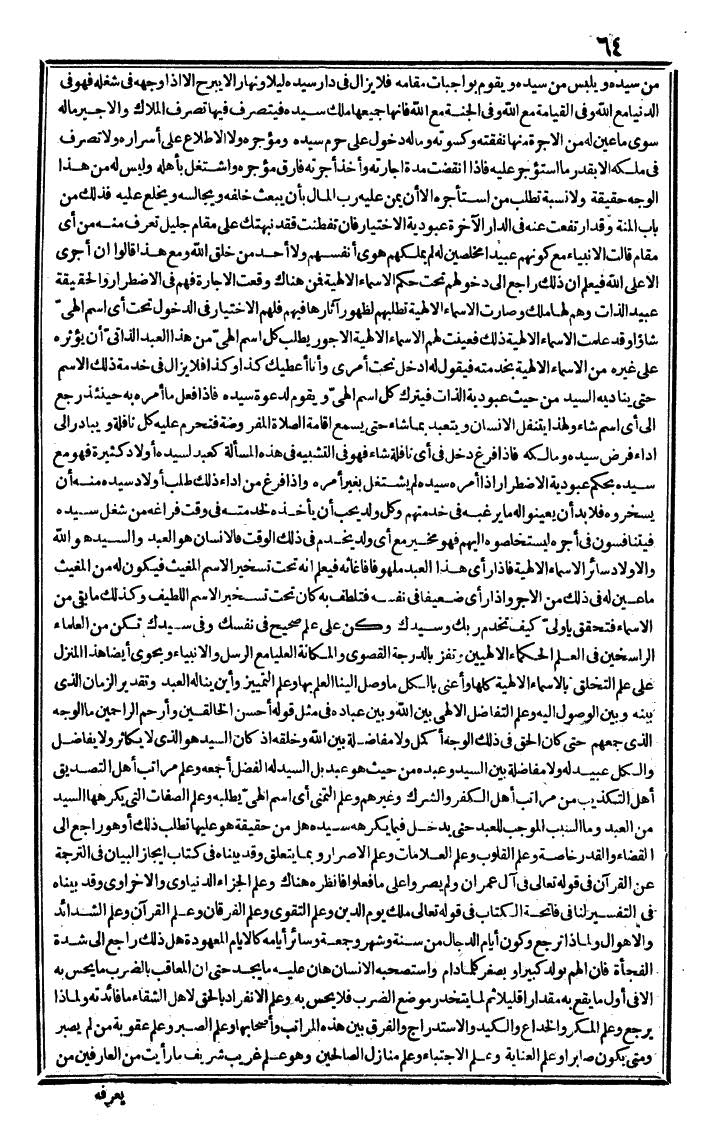 ٦٤
من سيده ويلبس من سيده ويقوم بواجبات مقامه فلا يزال فى دار سيده ليلا ونهارا لا يبرح الا اذا وجهه فى شغله فهو فى
الدنيا مع الله وفى القيامة مع الله وفى الجنة مع الله فانها جميعها ملك سيده فيتصرف فيها تصرف الملاك والاجير ماله
سوى ماعين له من الاجرة منها نفقته وكسوته وماله دخول على حرم سيده ومؤجره ولا الاطلاع على أسراره ولا تصرف
فى ملكه الا بقدر ما استؤجر عليه فاذا انقضت مدة اجارته وأخذ أجرته فارق مؤجره واشتغل بأهله وليس له من هذا
الوجه حقيقة ولا نسبة تطلب من استأجره الا أن يمن عليه رب المال بأن يبعث خلفه ويجالسه ويخلع عليه فذلك من
باب المنة وقد ارتفعت عنه فى الدار الآخرة عبودية الاختيار فان تفطنت فقد نبهتك على مقام جليل تعرف منه من أى
مقام قالت الانبياء مع كونهم عبيدا مخلصين له لم يملكهم هوى أنفسهم ولا أحد من خلق الله ومع هذا قالوا ان أجرى
الا على الله فيعلم ان ذلك راجع الى دخولهم تحت حكم الاسماء الالهية فمن هناك وقعت الاجارة فهم فى الاضطرار والحقيقة
عبيد الذات وهم لها ملك وصارت الاسماء الالهية تطلبهم لظهور آثارها فيهم فلهم الاختيار فى الدخول تحت أى اسم الهىّ
شاؤا وقد علمت الاسماء الالهية ذلك فعينت لهم الاسماء الالهية الاجور يطلب كل اسم الهىّ من هذا العبد الذاتىّ أن يؤثره
على غيره من الاسماء الالهية بخدمته فيقول له ادخل تحت أمرى وأنا أعطيك كذا وكذا فلا يزال فى خدمة ذلك الاسم
حتى يناديه السيد من حيث عبودية الذات فيترك كل اسم الهىّ ويقوم لدعوة سيده فاذا فعل ما أمره به حينئذ رجع
الى أى اسم شاء ولهذا يتنفل الانسان ويتعبد بما شاء حتى يسمع اقامة الصلاة المفروضة فتحرم عليه كل نافلة ويبادر الى
اداء فرض سيده ومالكه فاذا فرغ دخل فى أى نافلة شاء فهو فى التشبيه فى هذه المسألة كعبد لسيده أولاد كثيرة فهو مع
سيده بحكم عبودية الاضطرار اذا أمره سيده لم يشتغل بغير أمره واذا فرغ من اداء ذلك طلب أولاد سيده منه أن
يسخروه فلا بد أن يعينوا له ما يرغبه فى خدمتهم وكل ولد يحب أن يأخذه لخدمته فى وقت فراغه من شغل سيده
فيتنافسون فى أجره ليستخلصوه اليهم فهو مخير مع أى ولد يخدم فى ذلك الوقت فالانسان هو العبد والسيد هو الله
والاولاد سائر الاسماء الالهية فاذا رأى هذا العبد ملهوفا فاغاثه فيعلم انه تحت تسخير الاسم المغيث فيكون له من المغيث
ماعين له فى ذلك من الاجر واذا رأى ضعيفا فى نفسه فتلطف به كان تحت تسخير الاسم اللطيف وكذلك ما بقى من
الاسماء فتحقق ياولىّ كيف تخدم ربك وسيدك وكن على علم صحيح فى نفسك وفى سيدك تكن من العلماء
الراسخين فى العلم الحكماء الالهيين وتفز بالدرجة القصوى والمكانة العليا مع الرسل والانبياء ويحوى أيضا هذا المنزل
على علم التخلق بالاسماء الالهية كلها وأعنى بالكل ما وصل الينا العلم بها وعلم التمييز وأين يناله العبد وتقدير الزمان الذى
بينه وبين الوصول اليه وعلم التفاضل الالهى بين الله وبين عباده فى مثل قوله أحسن الخالقين وأرحم الراحمين ما الوجه
الذى جمعهم حتى كان الحق فى ذلك الوجه أكمل ولا مفاضلة بين الله وخلقه اذ كان السيد هو الذى لا يكاثر ولا يفاضل
والكل عبيد له ولا مفاضلة بين السيد وعبده من حيث هو عبد بل السيد له الفضل أجمعه وعلم مراتب أهل التصديق
أهل التكذيب من مراتب أهل الكفر والشرك وغيرهم وعلم التمنى أى اسم الهىّ يطلبه وعلم الصفات التى يكرهها السيد
من العبد وما السبب الموجب للعبد حتى يدخل فيما يكرهه سيده هل من حقيقة هو عليها تطلب ذلك أو هو راجع الى
القضاء والقدر خاصة وعلم القلوب وعلم العلامات وعلم الاصرار وبما يتعلق وقد بيناه فى كتاب ايجاز البيان فى الترجمة
عن القرآن فى قوله تعالى فى آل عمران ولم يصروا على ما فعلوا فانظره هناك وعلم الجزاء الدنياوى والاخراوى وقد بيناه
فى التفسير لنا فى فاتحة الكتاب فى قوله تعالى ملك يوم الدين وعلم التقوى وعلم الفرقان وعلم القرآن وعلم الشدائد
والاهوال ولماذا ترجع وكون أيام الدجال من سنة وشهر وجمعة وسائر أيامه كالايام المعهودة هل ذلك راجع الى شدة
الفجأة فان الهم يولد كبيرا ويصغر كلما دام واستصحبه الانسان هان عليه ما يجد حتى ان المعاقب بالضرب ما يحس به
الا فى أول ما يقع به مقدارا قليلا ثم لما يتخدر موضع الضرب فلا يحس به وعلم الانفراد بالحق لاهل الشقاء ما فائدته ولماذا
يرجع وعلم المكر والخداع والكيد والاستدراج والفرق بين هذه المراتب وأصحابها وعلم الصبر وعلم عقوبة من لم يصبر
ومتى يكون صابرا وعلم العناية وعلم الاجتباء وعلم منازل الصالحين وهو علم غريب شريف ما رأيت من العارفين من
يعرفه